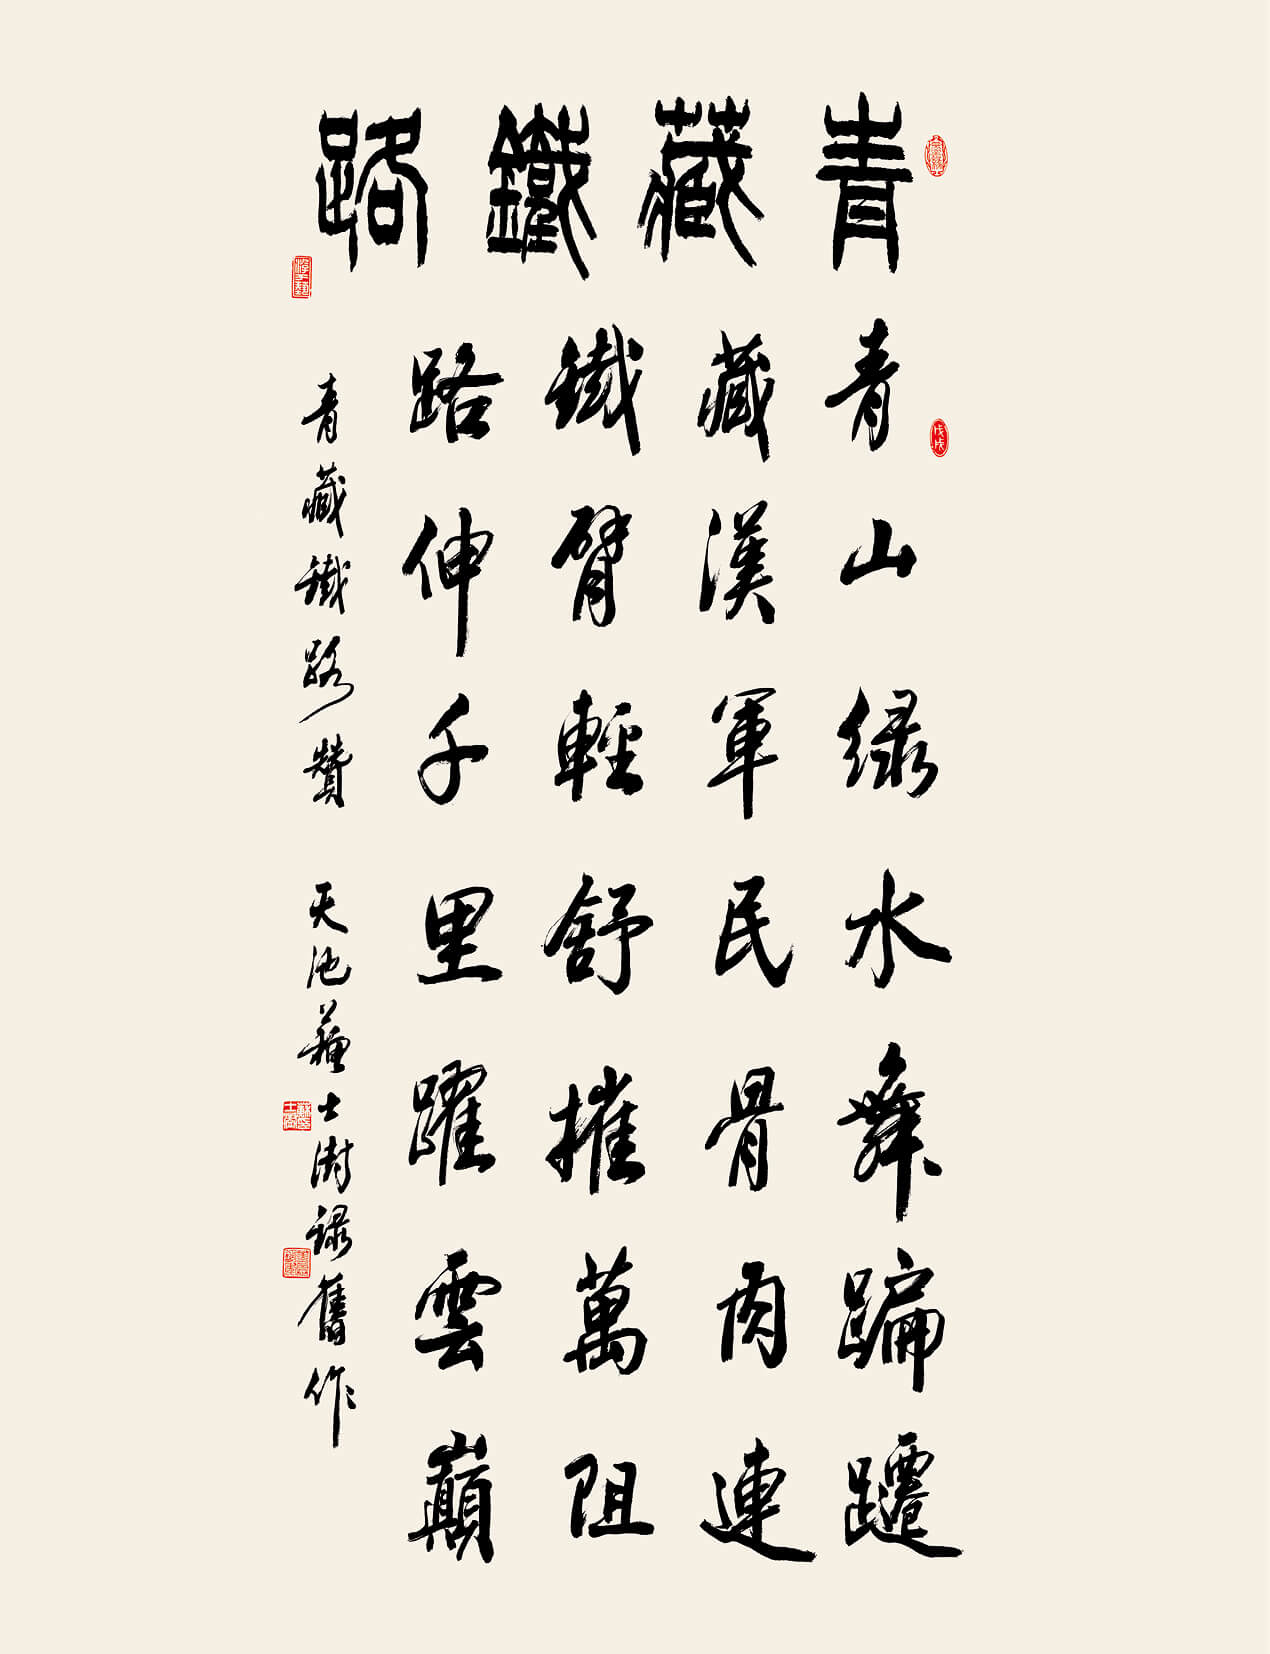 青藏鐵路
青山绿水舞蹁躚
藏漢軍民骨肉連
鐵臂輕舒摧萬阻
路伸千里躍雲巔
青藏鐵路贊 天池蘇士澍錄舊作
戊戌